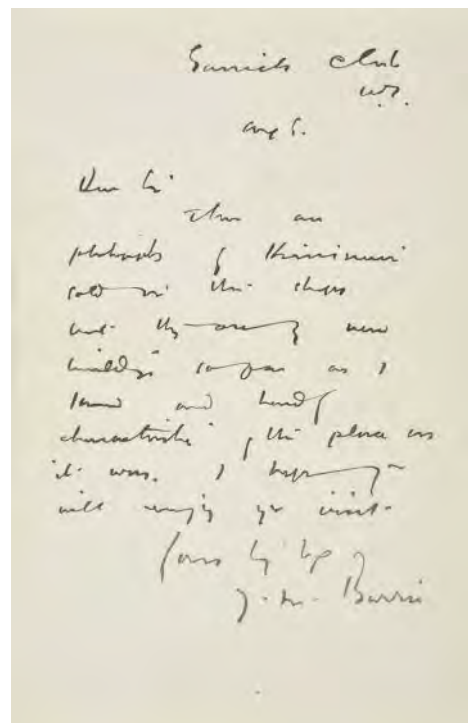 Garrick Club
W.C.
Aug 5.
Dear Sir
There are
photographs of Kirriemuir
sold in the shops
but they are of new
buildings so far as I
found and hardly
characteristic of the place as
it was. I hope you
will enjoy yr visit.
Yours
J. M. Barrie